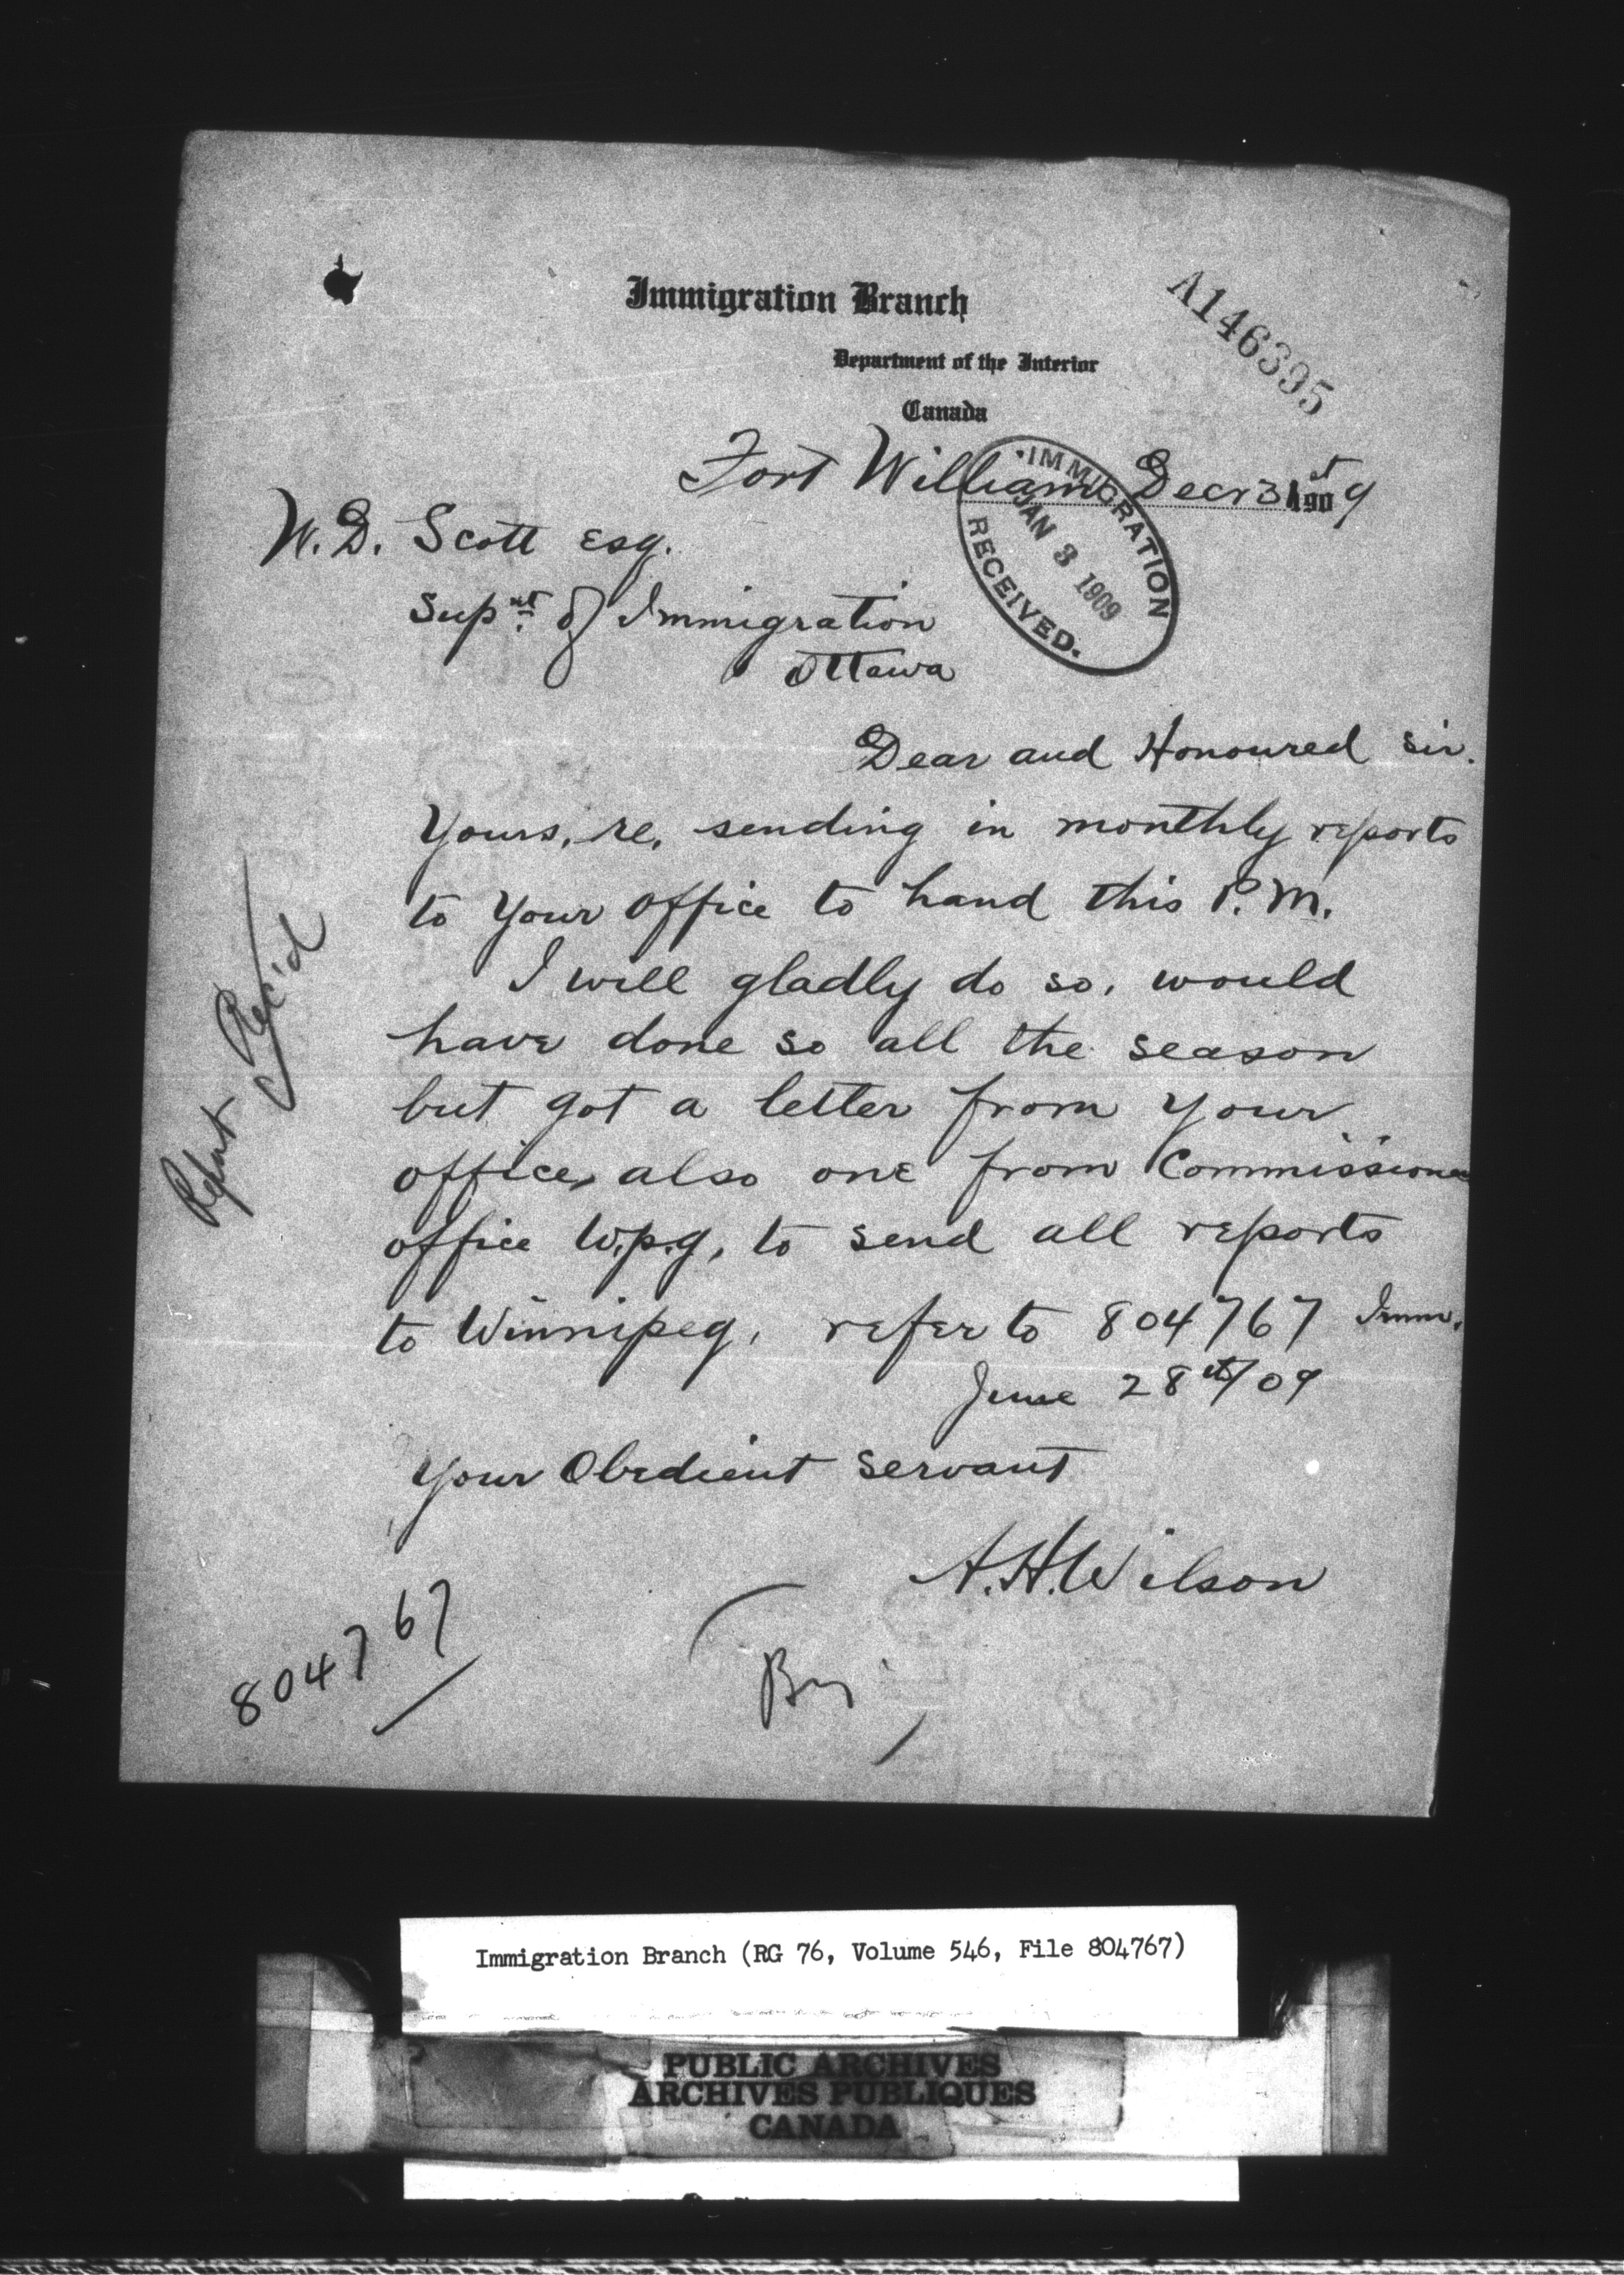 Immigration Branch
Department of the Interior
Canada
A146395
Fort William Decr 31st 1909
IMMIGRATION
JAN 3 1909
RECEIVED.
W. D. Scott Esq.
Supnt. of Immigration
Ottawa
Dear and Honoured Sir.
Yours, re, sending in monthly reports
to Your Office to hand this P.M.
I will gladly do so, would
have done so all the season
but got a letter from your
office, also one from Commissioner
office W.p.g, to send all reports
to Winnipeg, refer to 804767 Imm.
June 28th/09
Your Obedient Servant
A.H. Wilson
Report Rec'd
804767
Immigration Branch (RG 76, Volume 546, File 804767)
PUBLIC ARCHIVES
ARCHIVES PUBLIQUES
CANADA